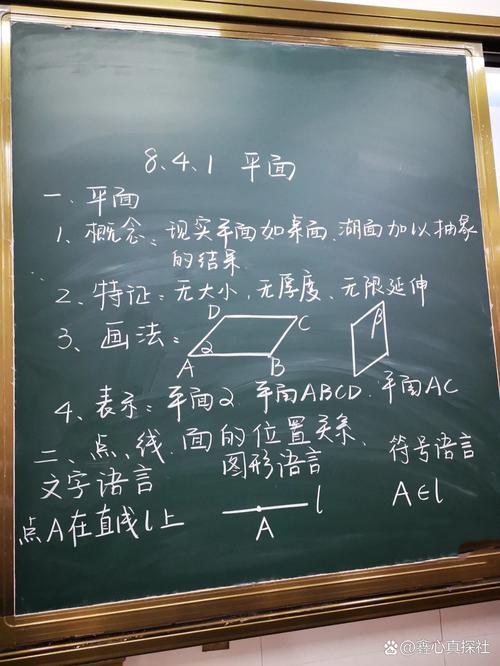 8.4.1 平面
一、平面
1、概念：现实平面如桌面、湖面加以抽象
的结果
2、特证：无大小、无厚度、无限延伸
3、画法：
D
C
α
A
B
β
4、表示：平面α 平面ABCD 平面AC
二、点、线、面的位置关系、
文字语言 图形语言 符号语言
点A在直线l上
l
A
A∈l
百家号/鑫心真探社